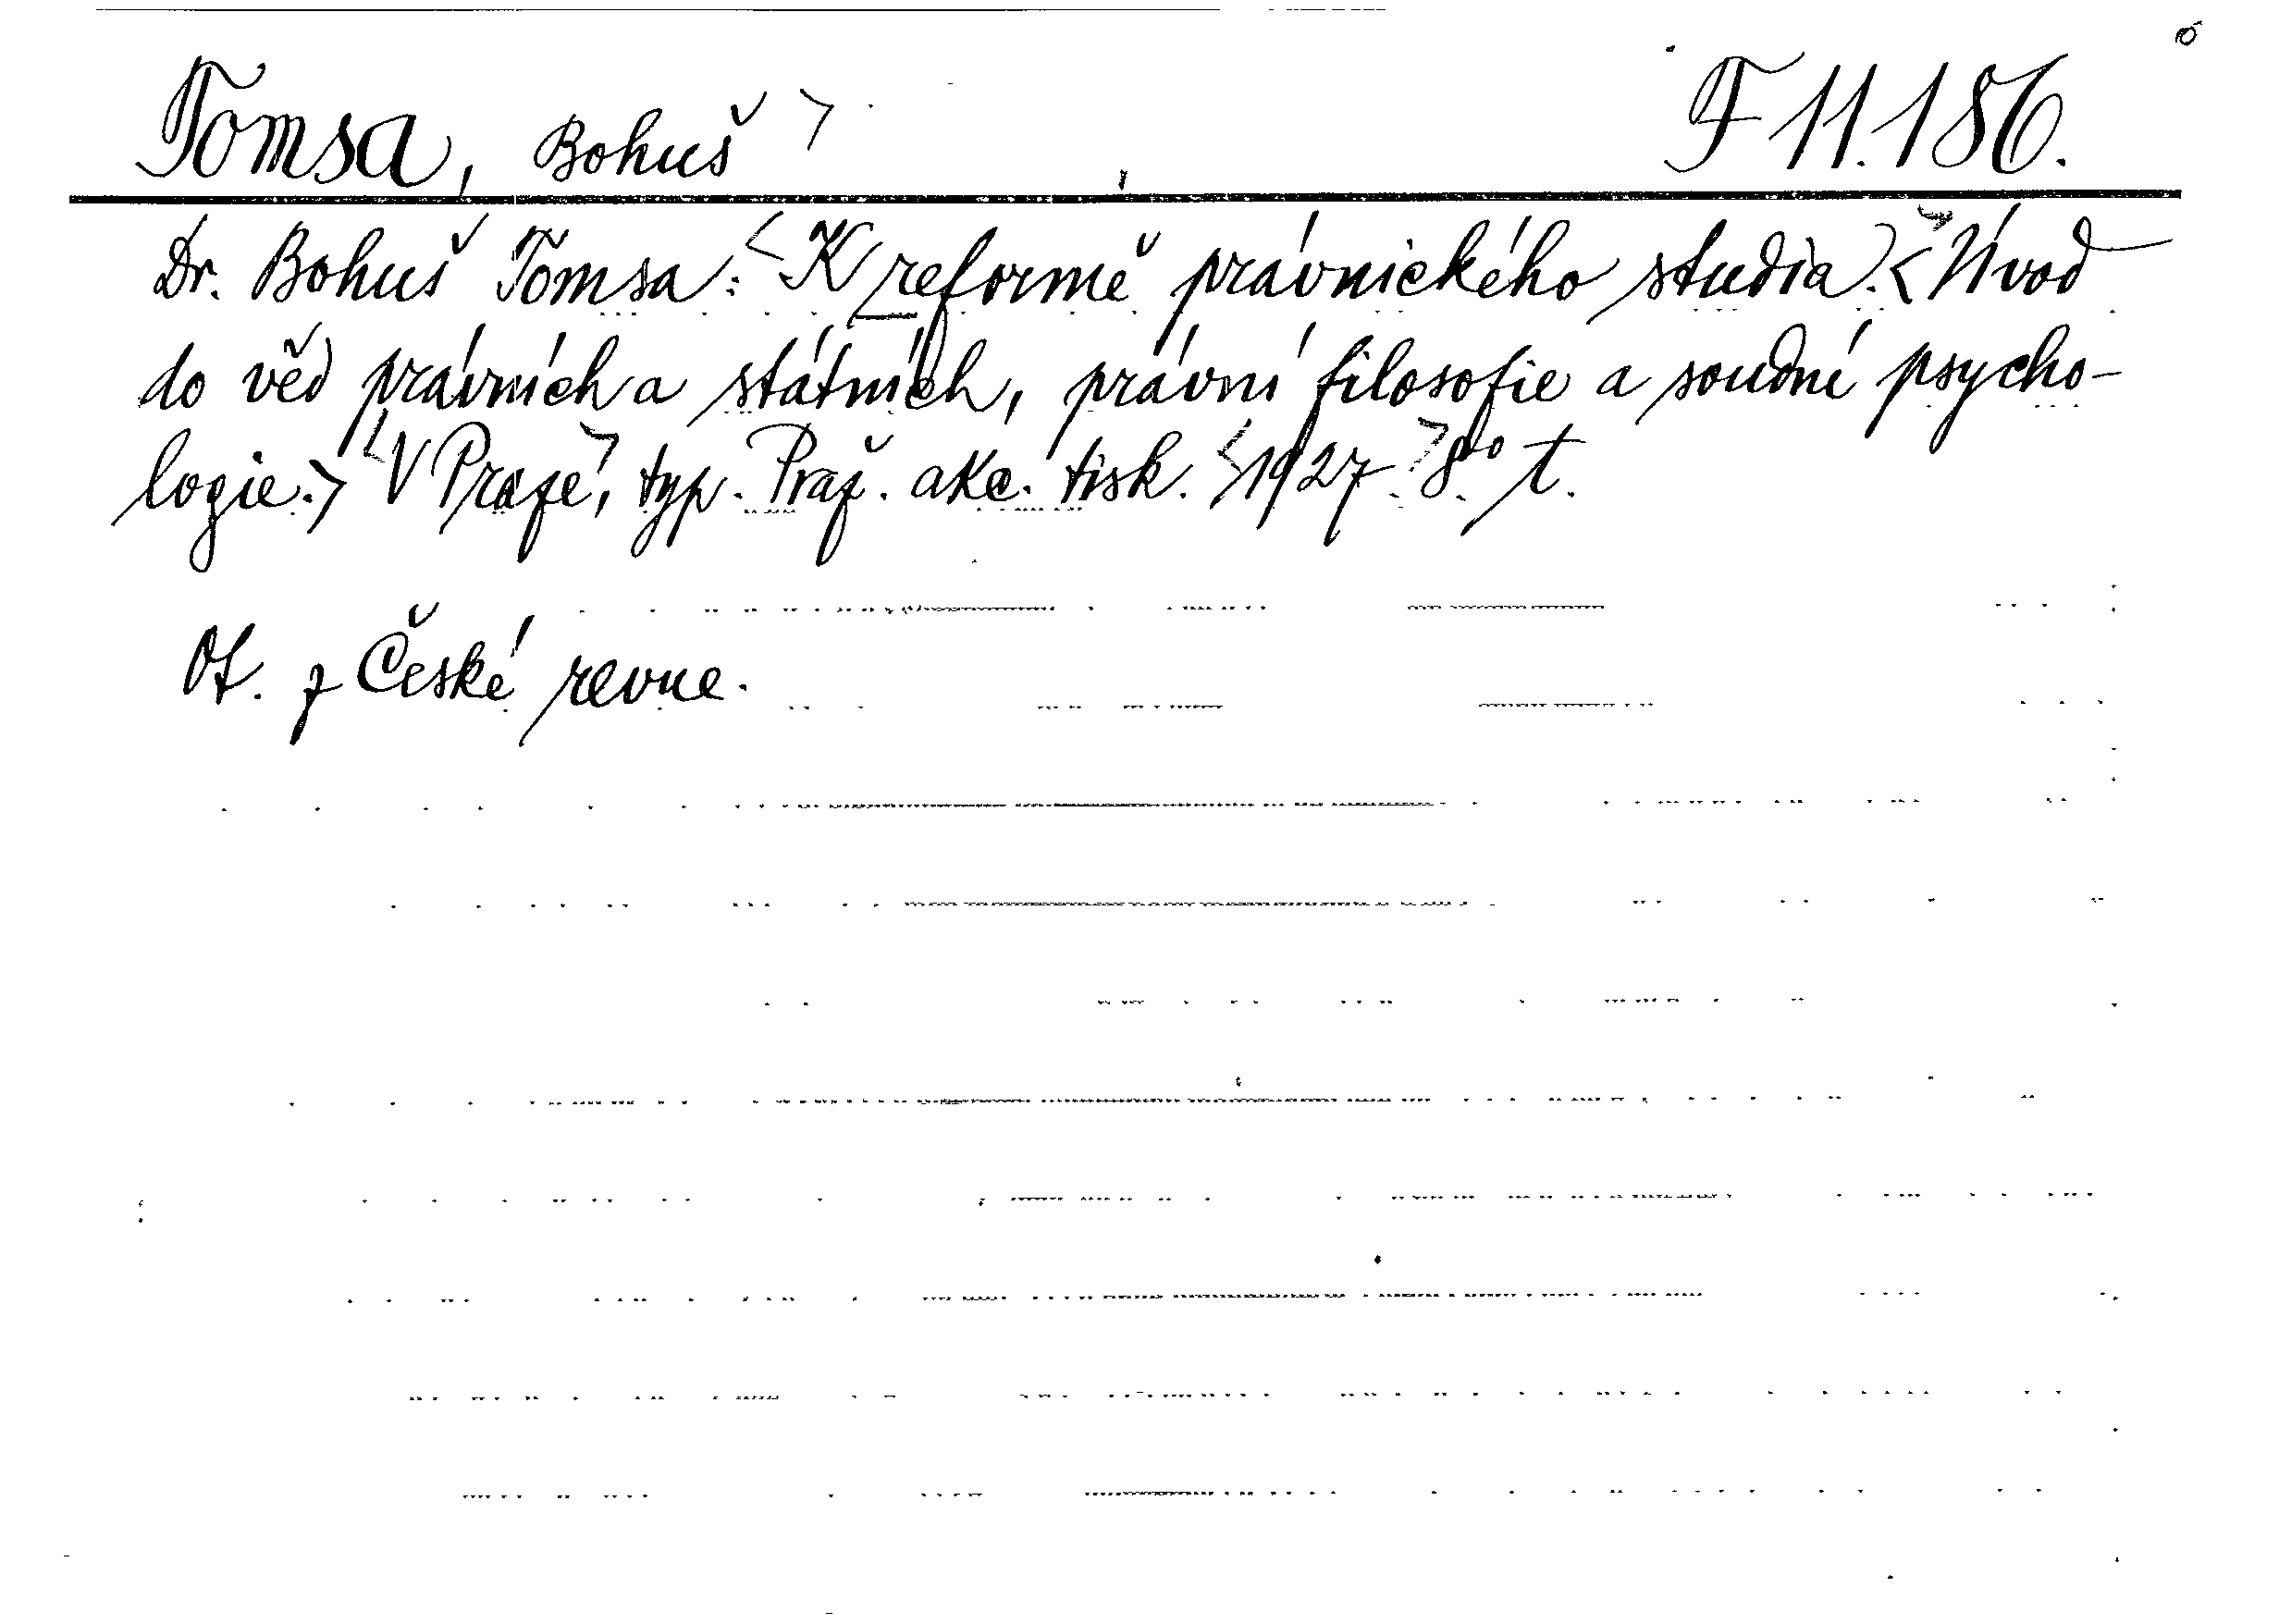 Tomsa, Bohuš F 11.186.
Dr. Bohuš Tomsa: K reformě právnického studia. Úvod
do věd právních a státních, právní filosofie a soudní psycho-
logie. V Praze, typ. Praž. akc. tisk. 1927. 8° t.
Ot. z České revue.